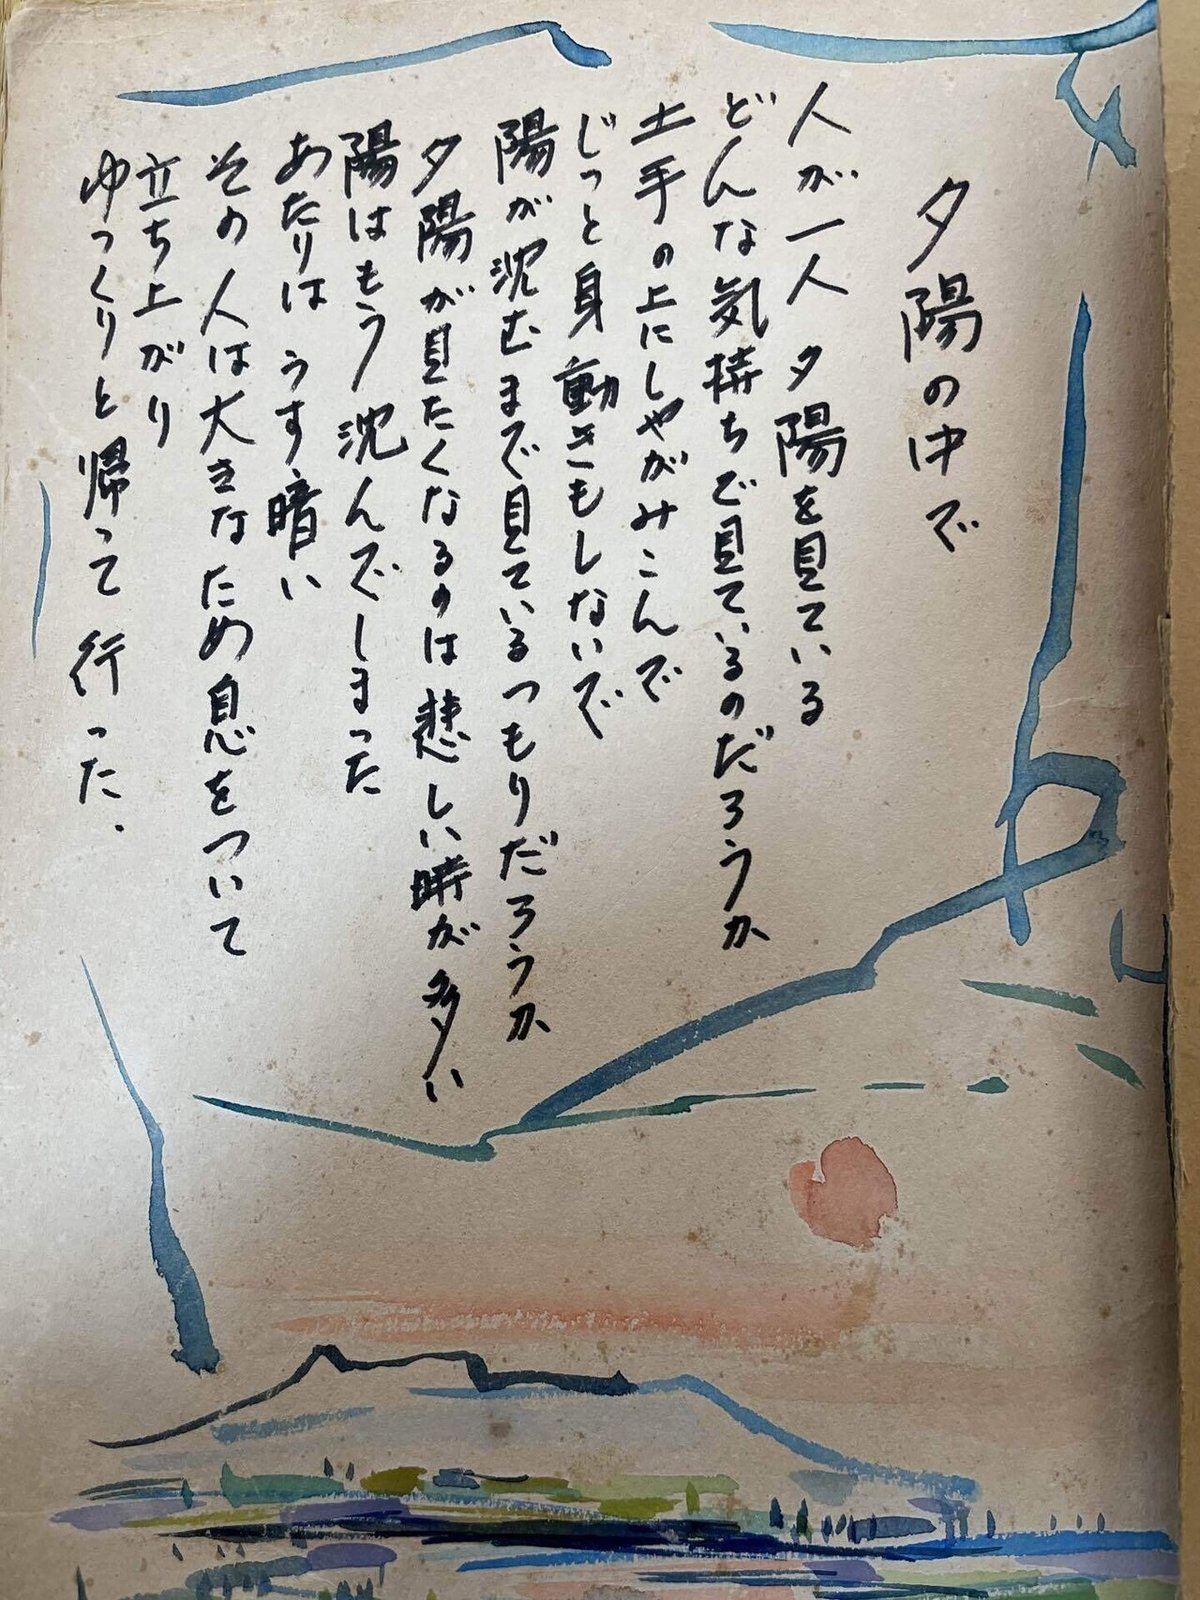 夕陽の中で
人が一人 夕陽を見ている
どんな気持ちで見ているのだろうか
土手の上にしゃがみこんで
じっと身動きもしないで
陽が沈むまで見ているつもりだろうか
夕陽が見たくなるのは悲しい時が多い
陽はもう沈んでしまった
あたりは うす暗い
その人は大きなため息をついて
立ち上がり
ゆっくりと帰って行った.